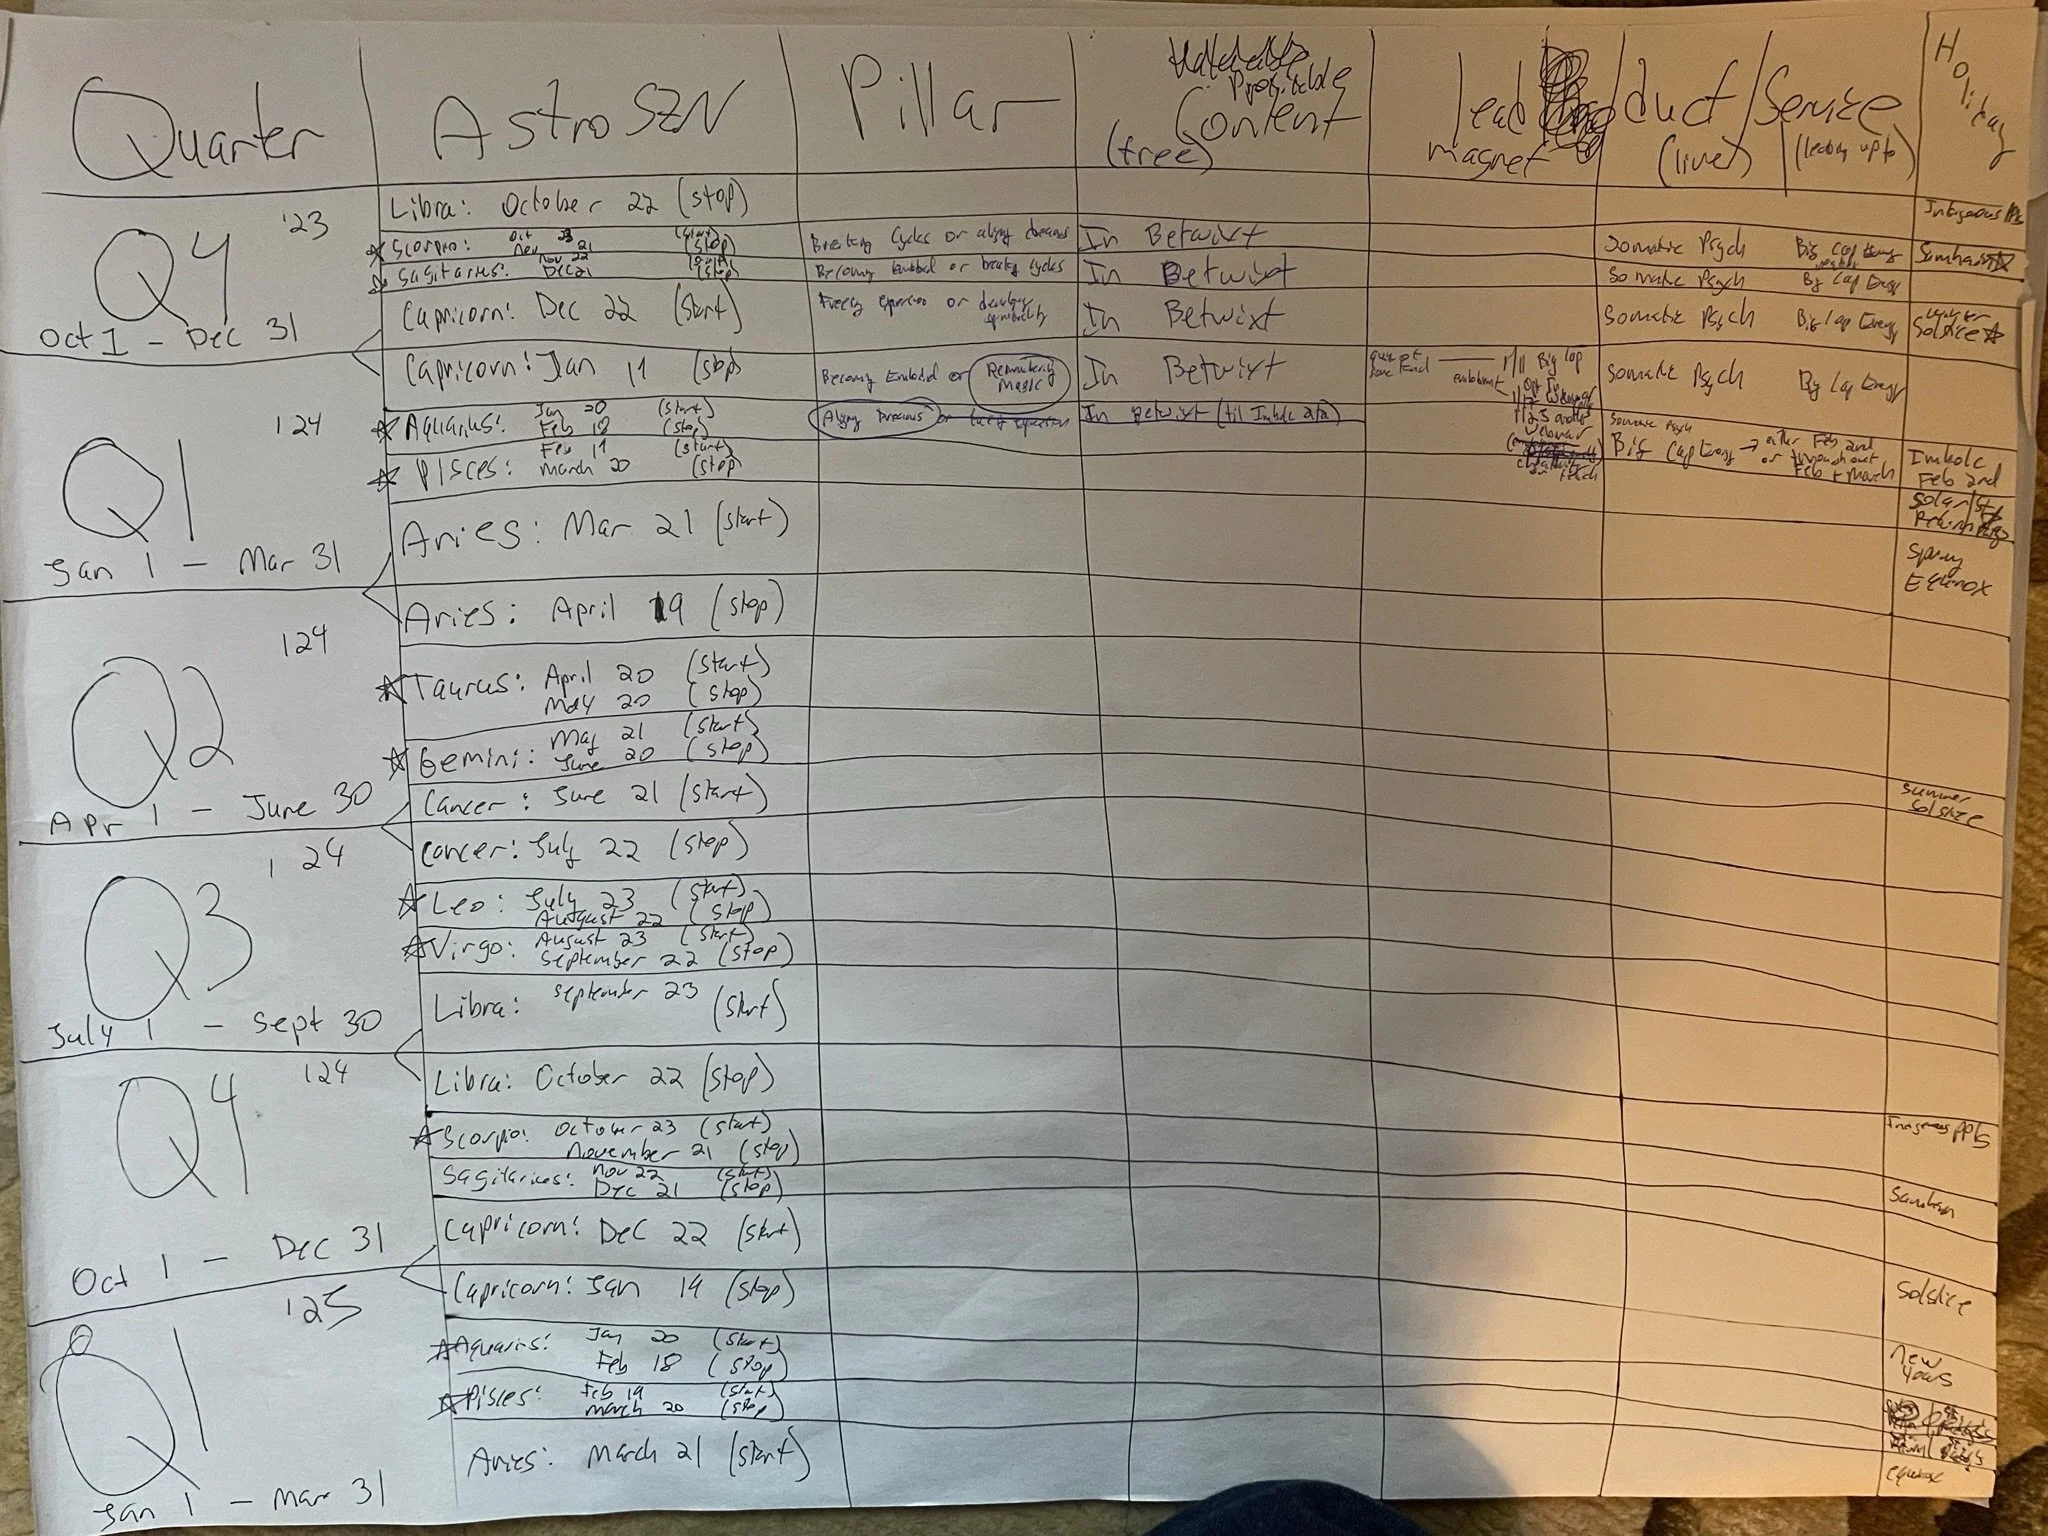 Quarter
Astro SZN
Pillar
Profitable
(free) Content
lead
magnet
Product/Service
(live) (leading up to)
Holiday
Q4 '23
Oct 1 - Dec 31
Libra: October 22 (stop)
☆ Scorpio: Oct 23 (start)
Nov 21 (stop)
Breaking Cycles or aligng dreams
In Betwixt
Somatic Psych
Big Cap Energy
Samhain ☆
☆ Sagitarius: Nov 22 (start)
Dec 21 (stop)
Becomng Embodied or breakg cycles
In Betwixt
Somatic Psych
Big Cap Energy
Capricorn: Dec 22 (start)
Freeig expression or
In Betwixt
Somatic Psych
Big Cap Energy
winter
Solstice ☆
Q1 '24
Jan 1 - Mar 31
Capricorn: Jan 19 (stop)
Becomng Embodied or Remembering
Magic
In Betwixt
1/11 Big Cap
Somatic Psych
Big Cap Energy
☆ Aquarius: Jan 20 (start)
Feb 18 (stop)
Aligng Dreams or
In Betwixt (til Imbolc)
☆ Pisces: Feb 19 (start)
March 20 (stop)
Somatic Psych
Big Cap Energy → either Feb 2nd
or throughout
Feb + March
Imbolc
Feb 2nd
Aries: Mar 21 (start)
Spring
Equinox
Q2 '24
Apr 1 - June 30
Aries: April 19 (stop)
☆ Taurus: April 20 (start)
May 20 (stop)
☆ Gemini: May 21 (start)
June 20 (stop)
Cancer: June 21 (start)
Summer
Solstice
Q3 '24
July 1 - Sept 30
Cancer: July 22 (stop)
☆ Leo: July 23 (start)
Auguast 22 (stop)
☆ Virgo: August 23 (start)
September 22 (stop)
Libra: September 23 (start)
Q4 '24
Oct 1 - Dec 31
Libra: October 22 (stop)
☆ Scorpio: October 23 (start)
November 21 (stop)
Sagitarius: Nov 22 (start)
Dec 21 (stop)
Samhain
Capricorn: Dec 22 (start)
Solstice
Q1 '25
Jan 1 - Mar 31
Capricorn: Jan 19 (stop)
New
Years
☆ Aquaris: Jan 20 (start)
Feb 18 (stop)
☆ Pisces: Feb 19 (start)
March 20 (stop)
Aries: March 21 (start)